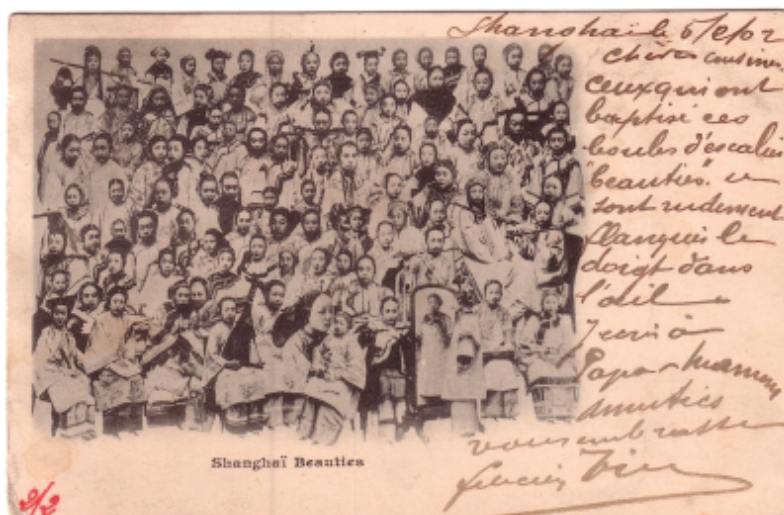 Shanghaï le 5/2/02
chères cousines
ceux qui ont
baptisé ces
boules d'escalier
"beauties" se
sont rudement
flanqués le
doigt dans
l'œil
à
Papa Maman
amitiés
vous embrasse
Shanghaï Beauties
2/2